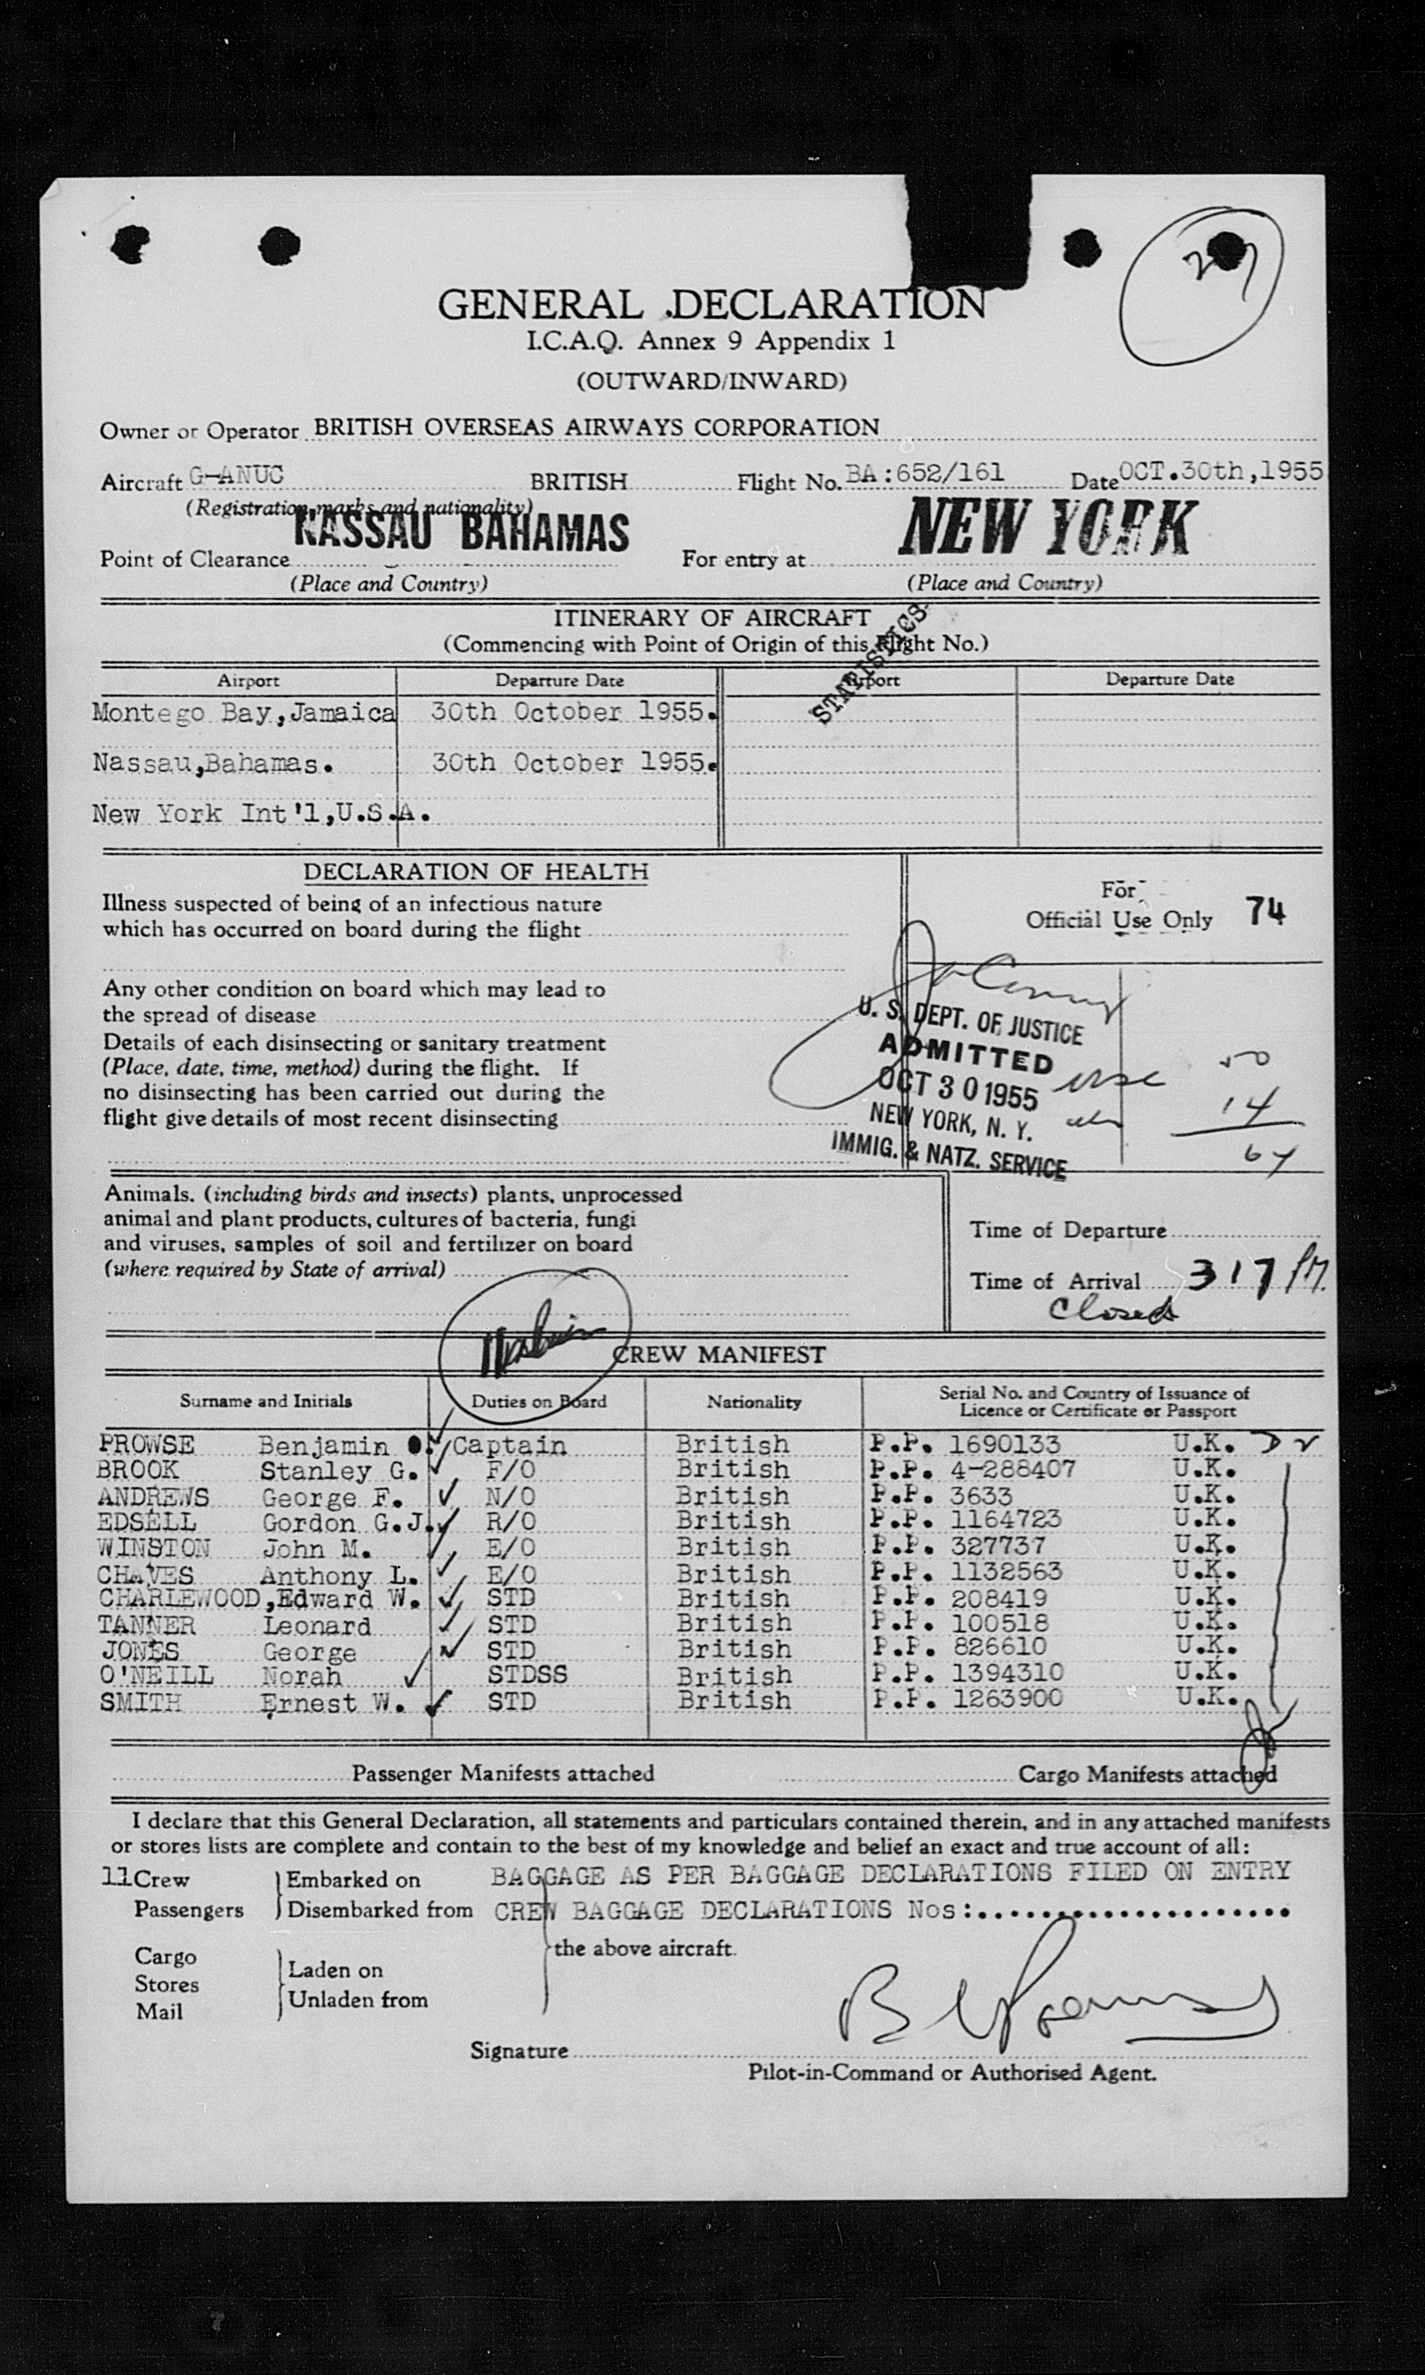 GENERAL DECLARATION
I.C.A.O. Annex 9 Appendix 1
(OUTWARD/INWARD)
Owner or Operator BRITISH OVERSEAS AIRWAYS CORPORATION
Aircraft G-ANUC BRITISH Flight No. BA:652/161 Date OCT.30th,1955
(Registration marks and nationality)
NASSAU BAHAMAS NEW YORK
Point of Clearance For entry at
(Place and Country) (Place and Country)
ITINERARY OF AIRCRAFT
(Commencing with Point of Origin of this Flight No.)
STATISTICS
Airport Departure Date Airport Departure Date
Montego Bay,Jamaica 30th October 1955.
Nassau,Bahamas. 30th October 1955.
New York Int'l,U.S.A.
DECLARATION OF HEALTH
Illness suspected of being of an infectious nature
which has occurred on board during the flight
Any other condition on board which may lead to
the spread of disease
Details of each disinsecting or sanitary treatment
(Place, date, time, method) during the flight. If
no disinsecting has been carried out during the
flight give details of most recent disinsecting
For
Official Use Only 74
U. S. DEPT. OF JUSTICE
ADMITTED
OCT 30 1955
NEW YORK, N. Y.
IMMIG. & NATZ. SERVICE
50
14
64
Animals, (including birds and insects) plants, unprocessed
animal and plant products, cultures of bacteria, fungi
and viruses, samples of soil and fertilizer on board
(where required by State of arrival)
Time of Departure
Time of Arrival 317 PM.
Closed
CREW MANIFEST
Surname and Initials Duties on Board Nationality Serial No. and Country of Issuance of
Licence or Certificate or Passport
PROWSE Benjamin O. Captain British P.P. 1690133 U.K.
BROOK Stanley G. F/O British P.P. 4-288407 U.K.
ANDREWS George F. N/O British P.P. 3633 U.K.
EDSELL Gordon G.J. R/O British P.P. 1164723 U.K.
WINSTON John M. E/O British P.P. 327737 U.K.
CHAVES Anthony L. E/O British P.P. 1132563 U.K.
CHARLEWOOD,Edward W. STD British P.P. 208419 U.K.
TANNER Leonard STD British P.P. 100518 U.K.
JONES George STD British P.P. 826610 U.K.
O'NEILL Norah STDSS British P.P. 1394310 U.K.
SMITH Ernest W. STD British P.P. 1263900 U.K.
Passenger Manifests attached Cargo Manifests attached
I declare that this General Declaration, all statements and particulars contained therein, and in any attached manifests
or stores lists are complete and contain to the best of my knowledge and belief an exact and true account of all:
11 Crew Embarked on BAGGAGE AS PER BAGGAGE DECLARATIONS FILED ON ENTRY
Passengers Disembarked from CREW BAGGAGE DECLARATIONS Nos:.....................
the above aircraft.
Cargo
Stores
Mail
Laden on
Unladen from
Signature
Pilot-in-Command or Authorised Agent.